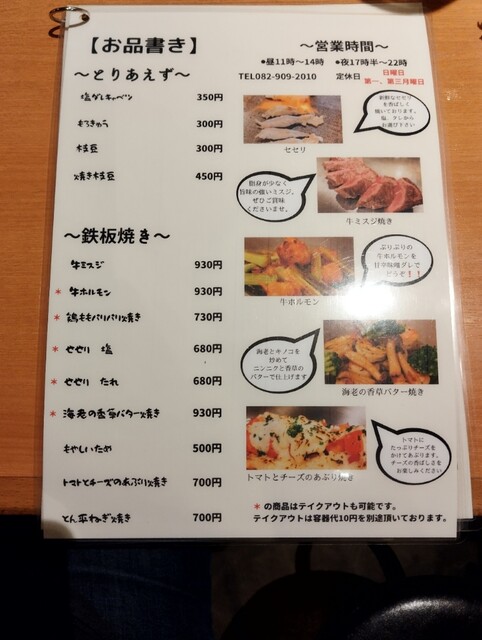 【お品書き】
～とりあえず～
塩ダレキャベツ 350円
もろきゅう 300円
枝豆 300円
焼き枝豆 450円
～鉄板焼き～
牛ミスジ 930円
* 牛ホルモン 930円
* 鶏ももパリパリ焼き 730円
* せせり 塩 680円
* せせり たれ 680円
* 海老の香草バター焼き 930円
もやしいため 500円
トマトとチーズのあぶり焼き 700円
とん平ねぎ焼き 700円
～営業時間～
●昼11時～14時 ●夜17時半～22時
TEL082-909-2010 定休日 日曜日
第一、第三月曜日
新鮮なセセリ
を香ばしく
焼いております。
塩、タレから
お選び下さい
セセリ
脂身が少なく
旨味の強いミスジ。
ぜひご賞味
くださいませ。
牛ミスジ焼き
ぷりぷりの
牛ホルモンを
甘辛味噌ダレで
どうぞ！！
牛ホルモン
海老とキノコを
炒めて
ニンニクと香草の
バターで仕上げます
海老の香草バター焼き
トマトに
たっぷりチーズを
かけてあぶります。
チーズの香ばしさを
お楽しみください
トマトとチーズのあぶり焼き
* の商品はテイクアウトも可能です。
テイクアウトは容器代10円を別途頂いております。